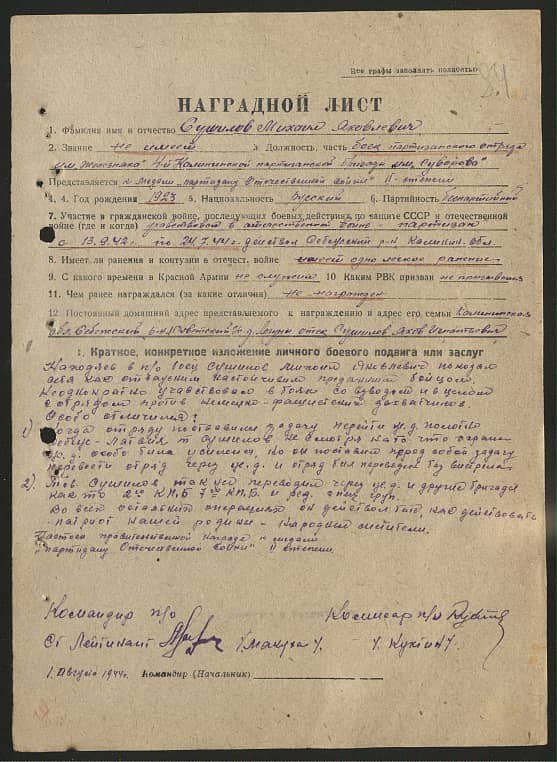 Все графы заполнять полностью
НАГРАДНОЙ ЛИСТ
1. Фамилия имя и отчество Сушилов Михаил Яковлевич
2. Звание не имеет 3. Должность, часть боец партизанского отряда
4-й Калининской партизанской бригады им. Суворова"
Представляется к медали "партизану Отечественной войны" II степени
4. Год рождения 1923 5. Национальность Русский 6. Партийность беспартийный
7. Участие в гражданской войне, последующих боевых действиях по защите СССР и отечественной
войне (где и когда) участвовал в отечественной войне - партизан
с 13.9.42г. по 24.7.44г. действ Себежский р-н Калинин. обл.
8. Имеет ли ранения и контузии в отечест. войне имеет одно легкое ранение
9. С какого времени в Красной Армии не служил 10 Каким РВК призван не призывался
11. Чем ранее награждался (за какие отличия) не награжден
12 Постоянный домашний адрес представляемого к награждению и адрес его семьи Калининская
обл. Себежский р-н д. отец Сушилов Яков
I. Краткое, конкретное изложение личного боевого подвига или заслуг
Находясь в п/о Сушилов Михаил Яковлевич показал
себя как отважным настойчивым преданным бойцом.
Неоднократно участвовал в боях со взводом и в целом
с отрядом против немецко-фашистских захватчиков.
Особо отличился:
1) Когда отряду поставили задачу перейти ж.д. полотно
Себеж - Латвия т Сушилов не смотря на то что охрана
ж.д. особо была усилена, но он поставил перед собой задачу
перевести отряд через ж.д. и отряд был переведен без выстрела
2) Тов Сушилов так же переводил через ж.д. и другие бригады
как то 2ю К.П.Б 7ю К.П.Б. и ряд групп.
Во всех остальных операциях он действовал как действовать
патриот нашей родины - народный мститель.
Достоин правительственной награды "медали
"партизану Отечественной войны" II степени.
Командир п/о Комиссар п/о
Ст Лейтинант
1. Август 1944г. Командир (Начальник)